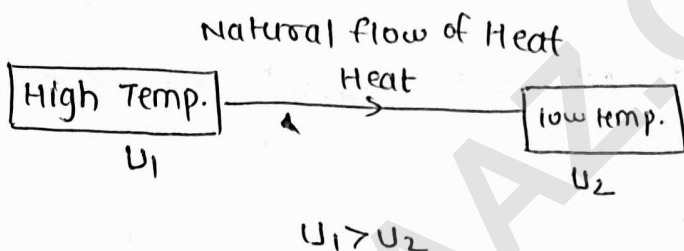 Natural flow of Heat
Heat
High Temp.
low temp.
U1
U2
U1 > U2